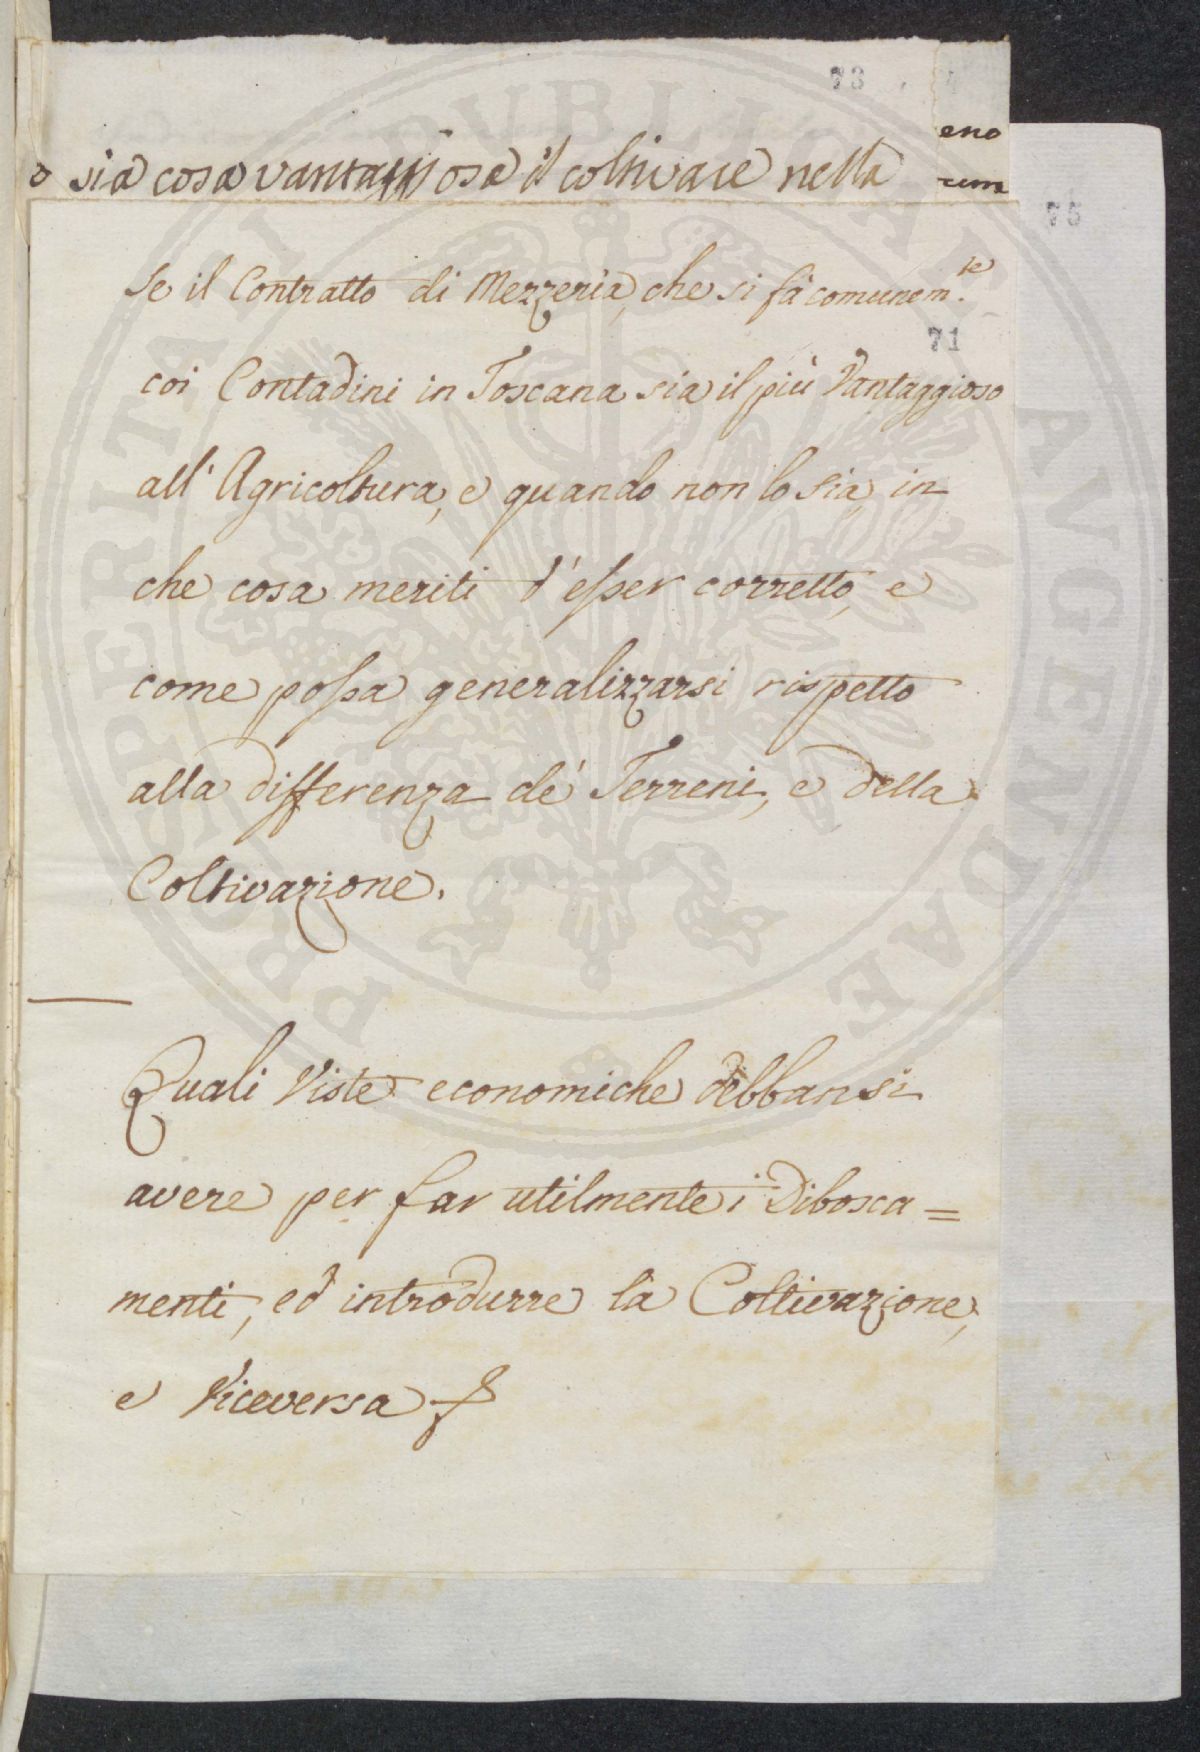 73
eno
o sia cosa vantaggiosa il coltivare nella
75
Se il Contratto di Mezzerìa, che si fà comunem.te
71
coi Contadini in Toscana sia il più Vantaggioso
all' Agricoltura, e quando non lo sia, in
che cosa meriti d'esser corretto, e
come possa generalizzarsi rispetto
alla differenza de' Terreni, e della
Coltivazione.
Quali Viste economiche debbansi
avere per far utilmente i Dibosca=
menti, ed introdurre la Coltivazione,
e Viceversa
PROSPERITATI PUBLICAE AUGENDAE